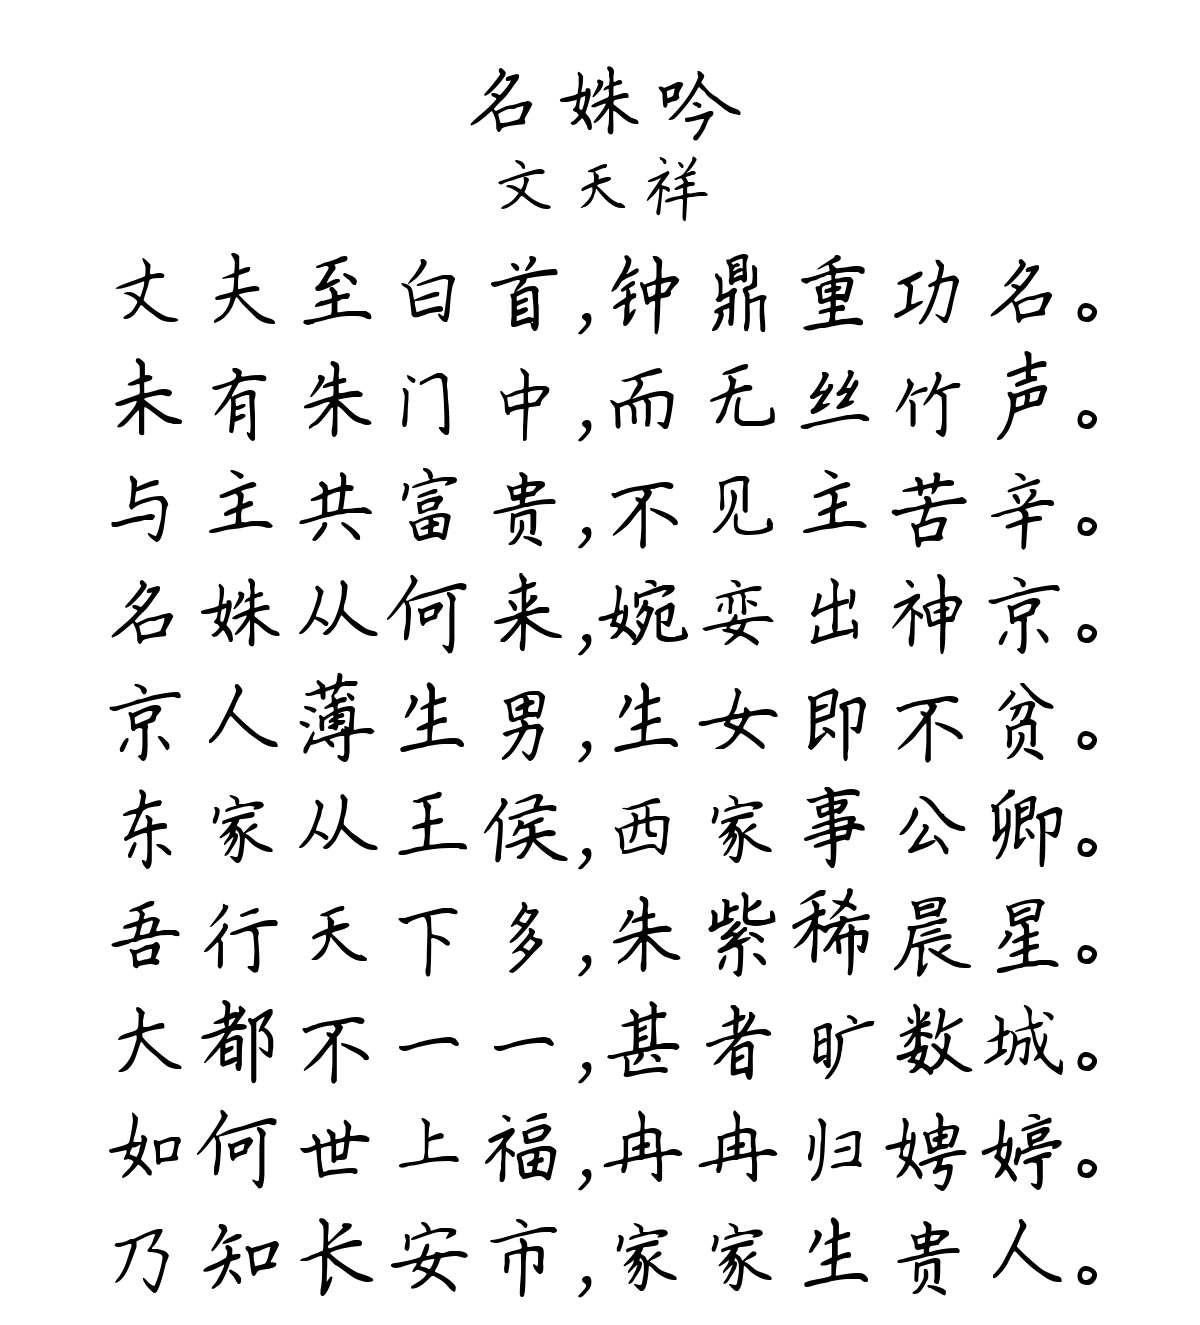 名姝吟
文天祥
丈夫至白首,钟鼎重功名。
未有朱门中,而无丝竹声。
与主共富贵,不见主苦辛。
名姝从何来,婉娈出神京。
京人薄生男,生女即不贫。
东家从王侯,西家事公卿。
吾行天下多,朱紫稀晨星。
大都不一一,甚者旷数城。
如何世上福,冉冉归娉婷。
乃知长安市,家家生贵人。